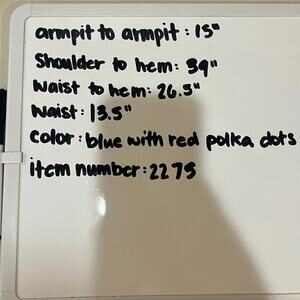 armpit to armpit : 15"
Shoulder to hem: 39"
Waist to hem: 26.5"
Waist: 13.5"
color: blue with red polka dots
item number: 2275